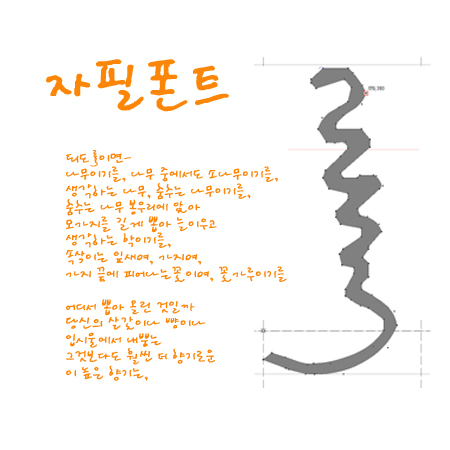 자필폰트
되도록이면~
나무이기를, 나무 중에서도 소나무이기를,
생각하는 나무, 춤추는 나무이기를,
춤추는 나무 봉우리에 앉아
모가지를 길게 뽑아 늘이우고
생각하는 학이기를,
속삭이는 잎새여, 가지여,
가지 끝에 피어나는 꽃이여, 꽃가루이기를
어디서 뽑아 올린 것일까
당신의 살갗이나 뺨이나
입시울에서 내뿜는
그것보다도 훨씬 더 향기로운
이 높은 향기는,